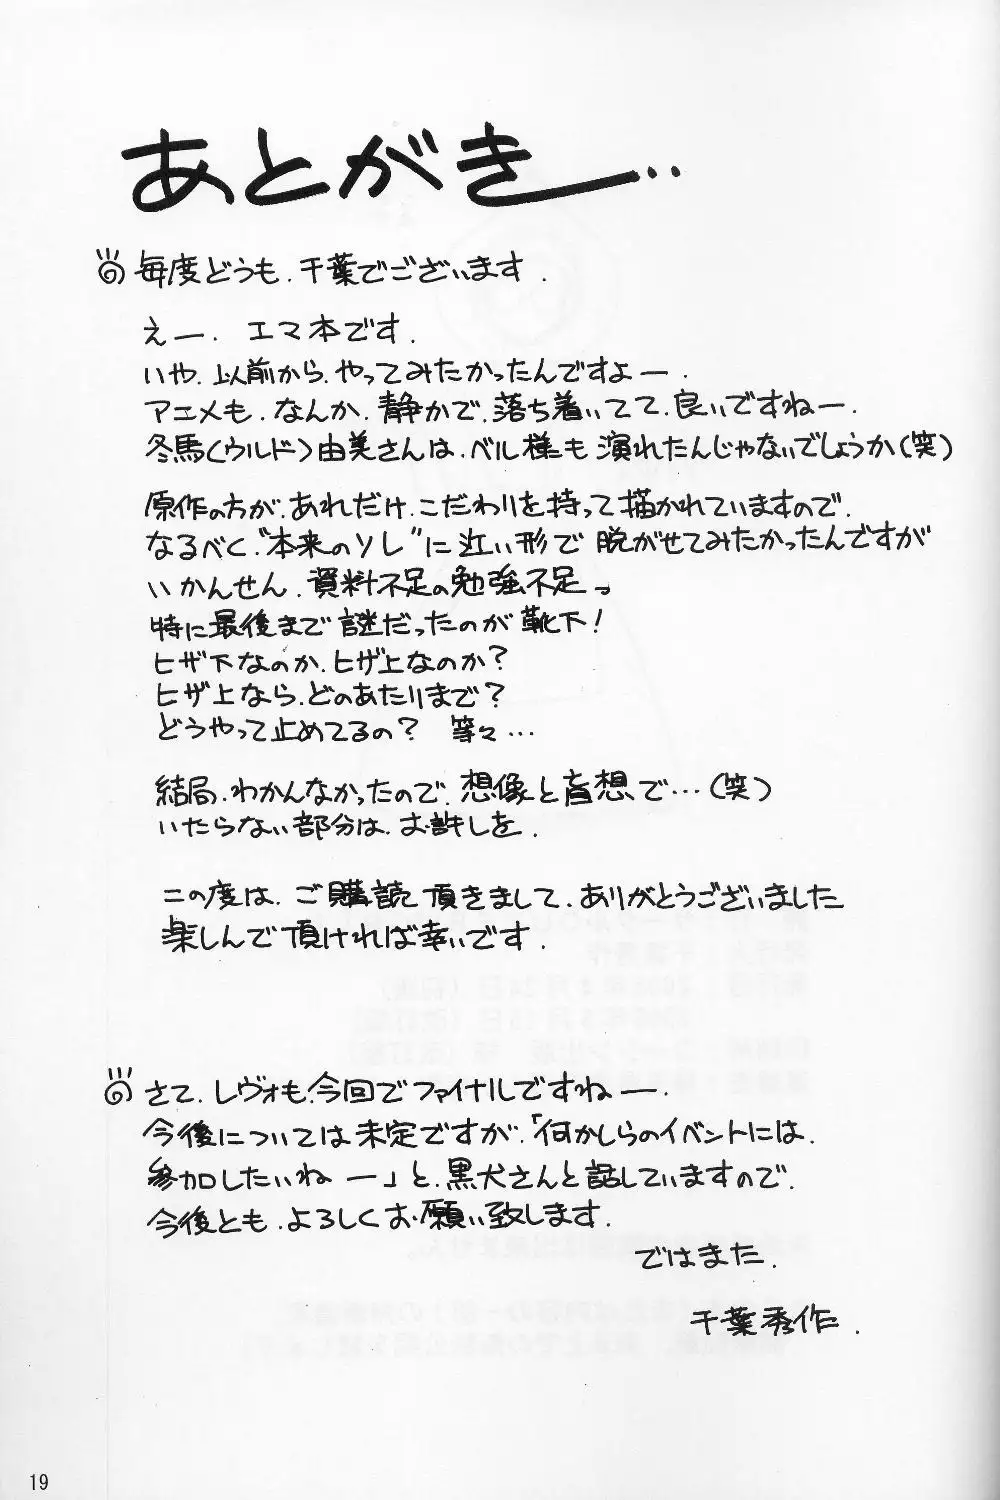 あとがき—..
毎度どうも、千葉でございます.
えー. エマ本です.
いや、以前から、やってみたかったんですよー.
アニメも、なんか、静かで、落ち着いてて、良いですねー.
冬馬(ウルド)由美さんは、ベル様も演れたんじゃないでしょうか(笑)
原作の方が、あれだけ、こだわりを持って描かれていますので、
なるべく、“本来のソレ”に近い形で脱がせてみたかったんですが
いかんせん、資料不足の勉強不足っ
特に最後まで謎だったのが靴下!
ヒザ下なのか、ヒザ上なのか?
ヒザ上なら、どのあたりまで?
どうやって止めてるの? 等々…
結局、わかんなかったので、想像と盲想で…(笑)
いたらない部分は、お許しを.
この度は、ご購読頂きまして、ありがとうございました
楽しんで頂ければ幸いです.
さて、レヴォも、今回でファイナルですねー.
今後については未定ですが、「何かしらのイベントには、
参加したいねー」と、黒犬さんと話していますので、
今後とも、よろしくお願い致します.
ではまた.
千葉秀作.
19